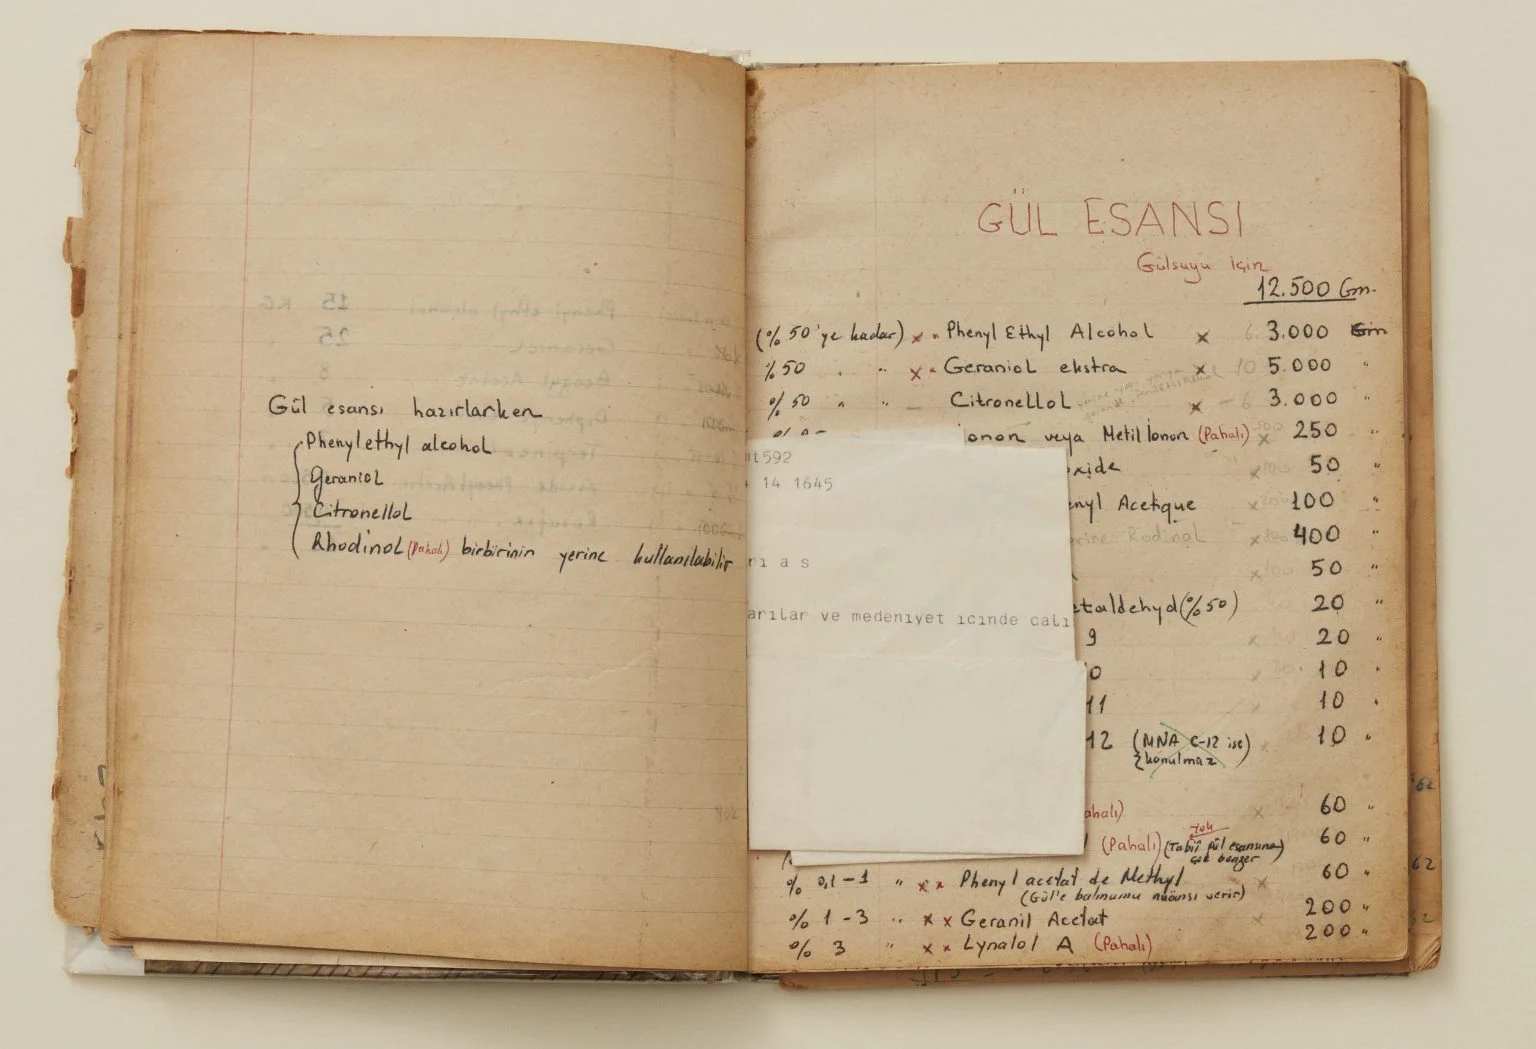 Gül esansı hazırlarken
Phenylethyl alcohol
Geraniol
Citronellol
Rhodinol (Pahalı) birbirinin yerine kullanılabilir
GÜL ESANSI
Gülsuyu için
12.500 Gm.
(% 50'ye kadar) x x Phenyl Ethyl Alcohol x 3.000 Gm
% 50 " " x x Geraniol ekstra x 5.000 "
% 50 " " Citronellol x 3.000 "
onon veya Metil Ionon (Pahalı) x 250 "
oxide x 50 "
enyl Acetique x 100 "
erine Rodinol x 400 "
x 50 "
etaldehyd (% 50) 20 "
9 x 20 "
0 x 10 "
11 x 10 "
12 (MNA C-12 ise konulmaz) x 10 "
ahalı) x 60 "
(Pahalı) (Tabiî gül esansına çok benzer) yok 60 "
% 0,1-1 " x x Phenyl acetat de Methyl x 60 "
(Gül'e balmumu nüansı verir)
% 1-3 " x x Geranil Acetat x 200 "
% 3 " x x Lynalol A (Pahalı) 200 "
nt592
14 1645
nı a s
arılar ve medenıyet ıcınde calı